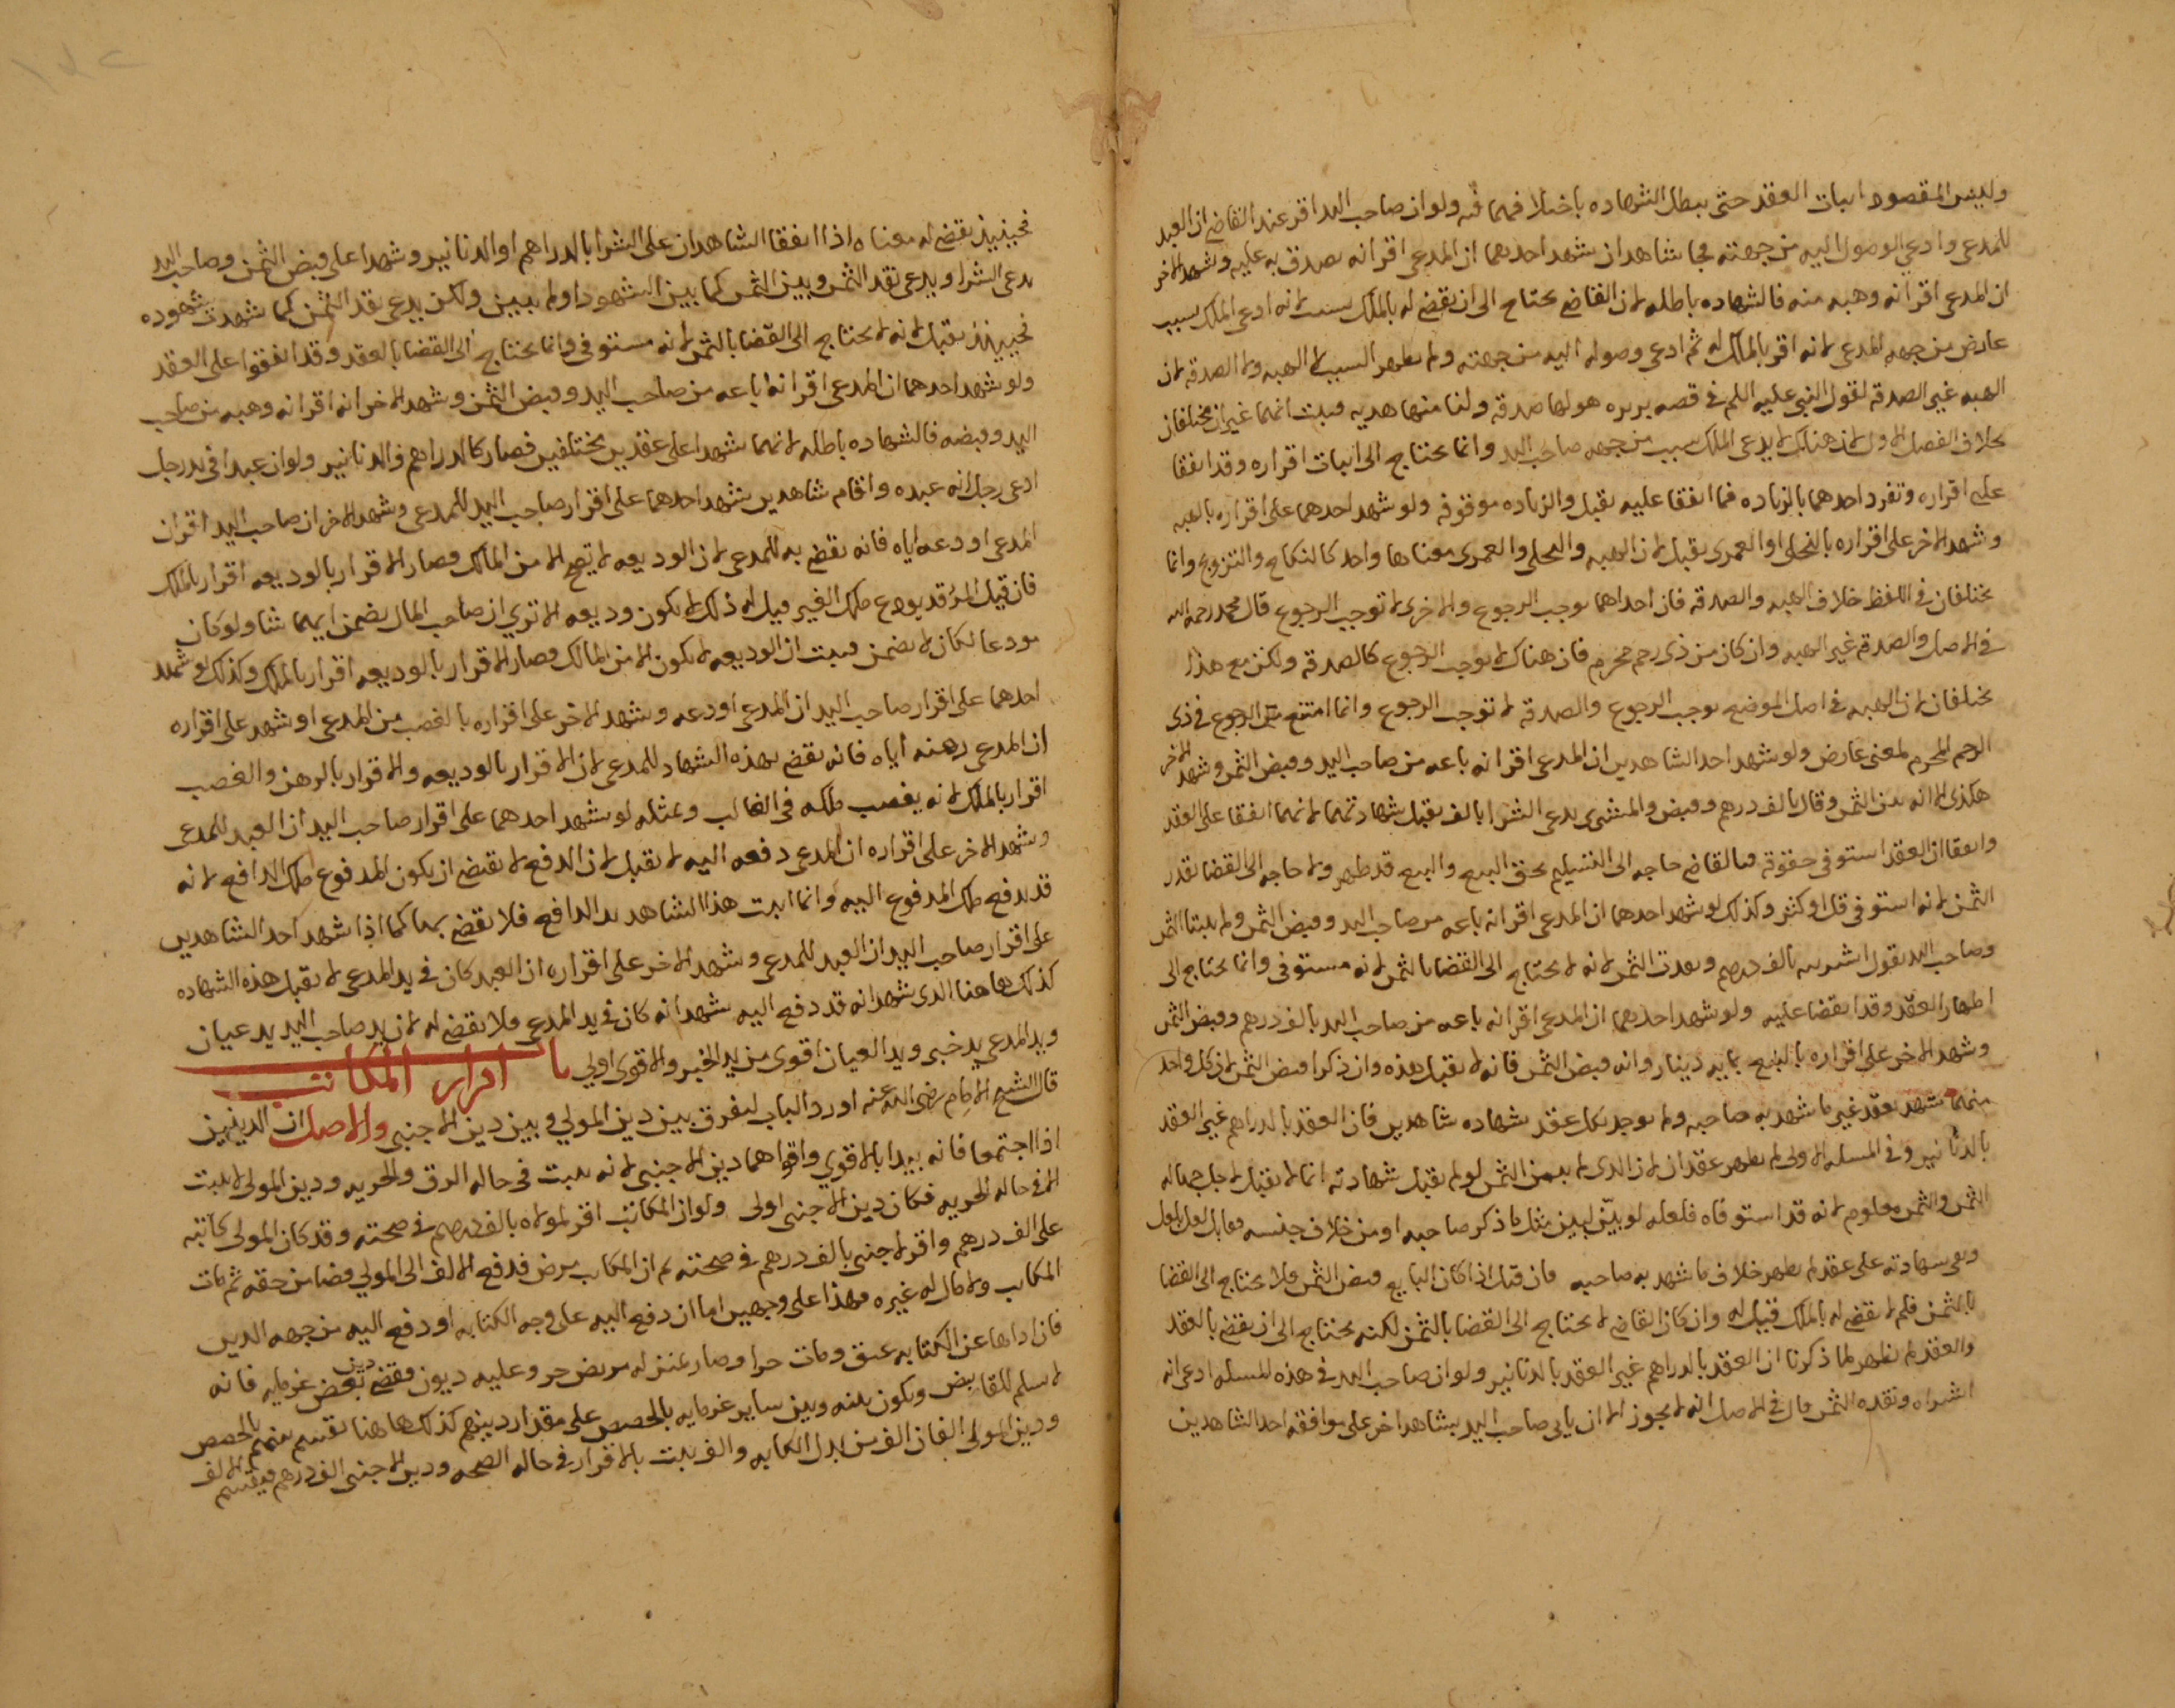 وليس المقصود اثبات العقد حتى يبطل الشهاده باختلافهما فيه ولو ان صاحب اليد اقر عند القاضي ان العبد
للمدعي وادعي الوصول اليه من جهته فجا شاهدان شهد احدهما ان المدعي اقر انه تصدق به عليه وشهد الاخر
ان المدعي اقر انه وهبه منه فالشهاده باطله لان القاضي يحتاج الى ان يقضي له بالملك بسبب لانه ادعى الملك بسبب
عارض من جهه المدعي لانه اقر بالملك له ثم ادعى وصوله اليه من جهته ولم يظهر السبب لا الهبه ولا الصدقه لان
الهبه غير الصدقه لقول النبي عليه السلم في قصه بريره هو لها صدقه ولنا منها هديه فثبت انهما غيران مختلفان
بخلاف الفصل الاول لان هناك لا يدعي الملك بسبب من جهه صاحب اليد وانما يحتاج الى اثبات اقراره وقد اتفقا
على اقراره وتفرد احدهما بالزياده فما اتفقا عليه يقبل والزياده موقوفه ولو شهد احدهما على اقراره بالهبه
وشهد الاخر على اقراره بالنحلى او العمرى يقبل لان الهبه والنحلى والعمرى معناها واحد كالنكاح والتزويج وانما
يختلفان في اللفظ خلاف الهبه والصدقه فان احداهما توجب الرجوع والاخرى لا توجب الرجوع قال محمد رحمه الله
في الاصل والصدقه غير الهبه وان كان من ذي رحم محرم فان هناك لا توجب الرجوع كالصدقه ولكن مع هذا
يختلفان لان الهبه في اصل الموضع توجب الرجوع والصدقه لا توجب الرجوع وانما امتنع الرجوع في ذي
الرحم المحرم لمعنى عارض ولو شهد احد الشاهدين ان المدعي اقر انه باعه من صاحب اليد وقبض الثمن وشهد الاخر
هكذى الا انه بين الثمن وقال بالف درهم وقبض والمشتري يدعي الشرا بالف يقبل شهادتهما لانهما اتفقا على العقد
واتفقا ان العقد استوفى حقوقه فما للقاضي حاجه الى التسليم بحق البيع والبيع قد ظهر ولا حاجه الى القضا بقدر
الثمن لانه استوفى قل او كثر وكذلك لو شهد احدهما ان المدعي اقر انه باعه من صاحب اليد وقبض الثمن ولم يثبتا الثمن
وصاحب اليد يقول اشتريته بالف درهم ونقدت الثمن لانه لا يحتاج الى القضا بالثمن لانه مستوفى وانما يحتاج الى
اظهار العقد وقد اتفقا عليه ولو شهد احدهما ان المدعي اقر انه باعه من صاحب اليد بالف درهم وقبض الثمن
وشهد الاخر على اقراره بالبيع بمايه دينار وانه قبض الثمن فانه لا يقبل هذه وان ذكرا قبض الثمن لان كل واحد
منهما شهد بعقد غير ما شهد به صاحبه ولم يوجد بكل عقد شهاده شاهدين فان العقد بالدراهم غير العقد
بالدنانير وفي المسله الاولى لم يظهر عقدان لان الذي لم يبين الثمن لو لم يقبل شهادته انما لا يقبل لاجل جهاله
الثمن والثمن معلوم لانه قد استوفاه فلعله لو بيّن لبين مثل ما ذكر صاحبه او من خلاف جنسه
وهي شهادته على عقد لم يظهر خلاف ما شهد به صاحبه فان قيل اذا كان البايع قبض الثمن ولا يحتاج الى القضا
بالثمن فلم لا يقضي له بالملك قيل له وان كان القاضي لا يحتاج الى القضا بالثمن لكنه يحتاج الى ان يقضي بالعقد
والعقد لم يظهر لما ذكرنا ان العقد بالدراهم غير العقد بالدنانير ولو ان صاحب اليد في هذه المسله ادعى انه
اشتراه ونقده الثمن قال في الاصل انه لا يجوز الا ان ياتي صاحب اليد بشاهد اخر على موافقه احد الشاهدين
فحينيذ يقضي له معناه اذا اتفقا الشاهدان على الشرا بالدراهم او الدنانير وشهدا على قبض الثمن وصاحب اليد
يدعي الشرا ويدعي نقد الثمن وبين الثمن كما بين الشهود او لم يبين ولكن يدعي نقد الثمن كما شهدت شهوده
فحينيذ يقبل لانه لا يحتاج الى القضا بالثمن لانه مستوفى وانما يحتاج الى القضا بالعقد وقد اتفقوا على العقد
ولو شهد احدهما ان المدعي اقر انه باعه من صاحب اليد وقبض الثمن وشهد الاخر انه اقر انه وهبه من صاحب
اليد وقبضه فالشهاده باطله لانهما شهدا على عقدين مختلفين فصار كالدراهم والدنانير ولو ان عبدا في يد رجل
ادعى رجل انه عبده واقام شاهدين شهد احدهما على اقرار صاحب اليد للمدعي وشهد الاخر ان صاحب اليد اقر ان
المدعي اودعه اياه فانه يقضي به للمدعي لان الوديعه لا تصح الا من المالك فصار الاقرار بالوديعه اقرار بالملك
فان قيل المرء قد يودع ملك الغير قيل له ذلك لا يكون وديعه الا تري ان صاحب المال يضمن ايهما شا ولو كان
مودعا لكان لا يضمن فثبت ان الوديعه لا تكون الا من المالك فصار الاقرار بالوديعه اقرار بالملك وكذلك لو شهد
احدهما على اقرار صاحب اليد ان المدعي اودعه وشهد الاخر على اقراره بالغصب من المدعي او شهد على اقراره
ان المدعي رهنه اياه فانه يقضي بهذه الشهاد للمدعي لان الاقرار بالوديعه والاقرار بالرهن والغصب
اقرار بالملك لانه يغصب ملكه في الغالب وبمثله لو شهد احدهما على اقرار صاحب اليد ان العبد للمدعي
وشهد الاخر على اقراره ان المدعي دفعه اليه لا يقبل لان الدفع لا يقتضي ان يكون المدفوع ملك الدافع لانه
قد يدفع ملك المدفوع اليه وانما اثبت هذا الشاهد يد الدافع فلا يقضي بها كما اذا شهد احد الشاهدين
على اقرار صاحب اليد ان العبد للمدعي وشهد الاخر على اقراره ان العبد كان في يد المدعي لا يقبل هذه الشهاده
كذلك هاهنا الذي شهد انه قد دفع اليه شهد انه كان في يد المدعي ولا يقضي له لان يد صاحب اليد يد عيان
ويد المدعي يد خبر ويد العيان اقوى من يد الخبر والاقوى اولى باب اقرار المكاتب
قال الشيخ الامام رضي الله عنه اورد الباب ليفرق بين دين المولي وبين دين الاجنبي والاصل ان الدينين
اذا اجتمعا فانه يبدا بالاقوي واقواهما دين الاجنبي لانه يثبت في حاله الرق والحريه ودين المولى لا يثبت
الا في حاله الحريه فكان دين الاجنبي اولى ولو ان المكاتب اقر لمولاه بالف درهم في صحته وقد كان المولى كاتبه
على الف درهم واقر لاجنبي بالف درهم في صحته ثم ان المكاتب مرض فدفع الالف الى المولي قضا من حقه ثم مات
المكاتب ولا مال له غيره فهذا على وجهين اما ان دفع اليه على وجه الكتابه او دفع اليه من جهه الدين
فان اداها عن الكتابه عتق ومات حرا وصار بمنزله مريض حر وعليه ديون فقضى دين بعض غرمايه فانه
لا يسلم للقابض ويكون بينه وبين ساير غرمايه بالحصص على مقدار دينهم كذلك هاهنا تقسم بينهم بالحصص
ودين المولى الفان الف من بدل الكتابه والف ثبت بالاقرار في حاله الصحه ودين الاجنبي الف درهم فيقسم الالف